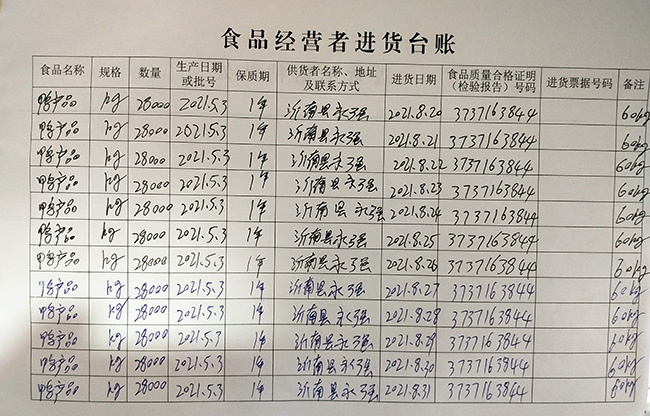 食品经营者进货台账
食品名称 规格 数量 生产日期或批号 保质期 供货者名称、地址及联系方式 进货日期 食品质量合格证明(检验报告)号码 进货票据号码 备注
鸭产品 kg 28000 2021.5.3 1年 沂南县永强 2021.8.20 3737163844 60kg
鸭产品 kg 28000 2021.5.3 1年 沂南县永强 2021.8.21 3737163844 60kg
鸭产品 kg 28000 2021.5.3 1年 沂南县永强 2021.8.22 3737163844 60kg
鸭产品 kg 28000 2021.5.3 1年 沂南县永强 2021.8.23 3737163844 60kg
鸭产品 kg 28000 2021.5.3 1年 沂南县永强 2021.8.24 3737163844 60kg
鸭产品 kg 28000 2021.5.3 1年 沂南县永强 2021.8.25 3737163844 60kg
鸭产品 kg 28000 2021.5.3 1年 沂南县永强 2021.8.26 3737163844 60kg
鸭产品 kg 28000 2021.5.3 1年 沂南县永强 2021.8.27 3737163844 60kg
鸭产品 kg 28000 2021.5.3 1年 沂南县永强 2021.8.28 3737163844 60kg
鸭产品 kg 28000 2021.5.3 1年 沂南县永强 2021.8.29 3737163844 60kg
鸭产品 kg 28000 2021.5.3 1年 沂南县永强 2021.8.30 3737163844 60kg
鸭产品 kg 28000 2021.5.3 1年 沂南县永强 2021.8.31 3737163844 60kg